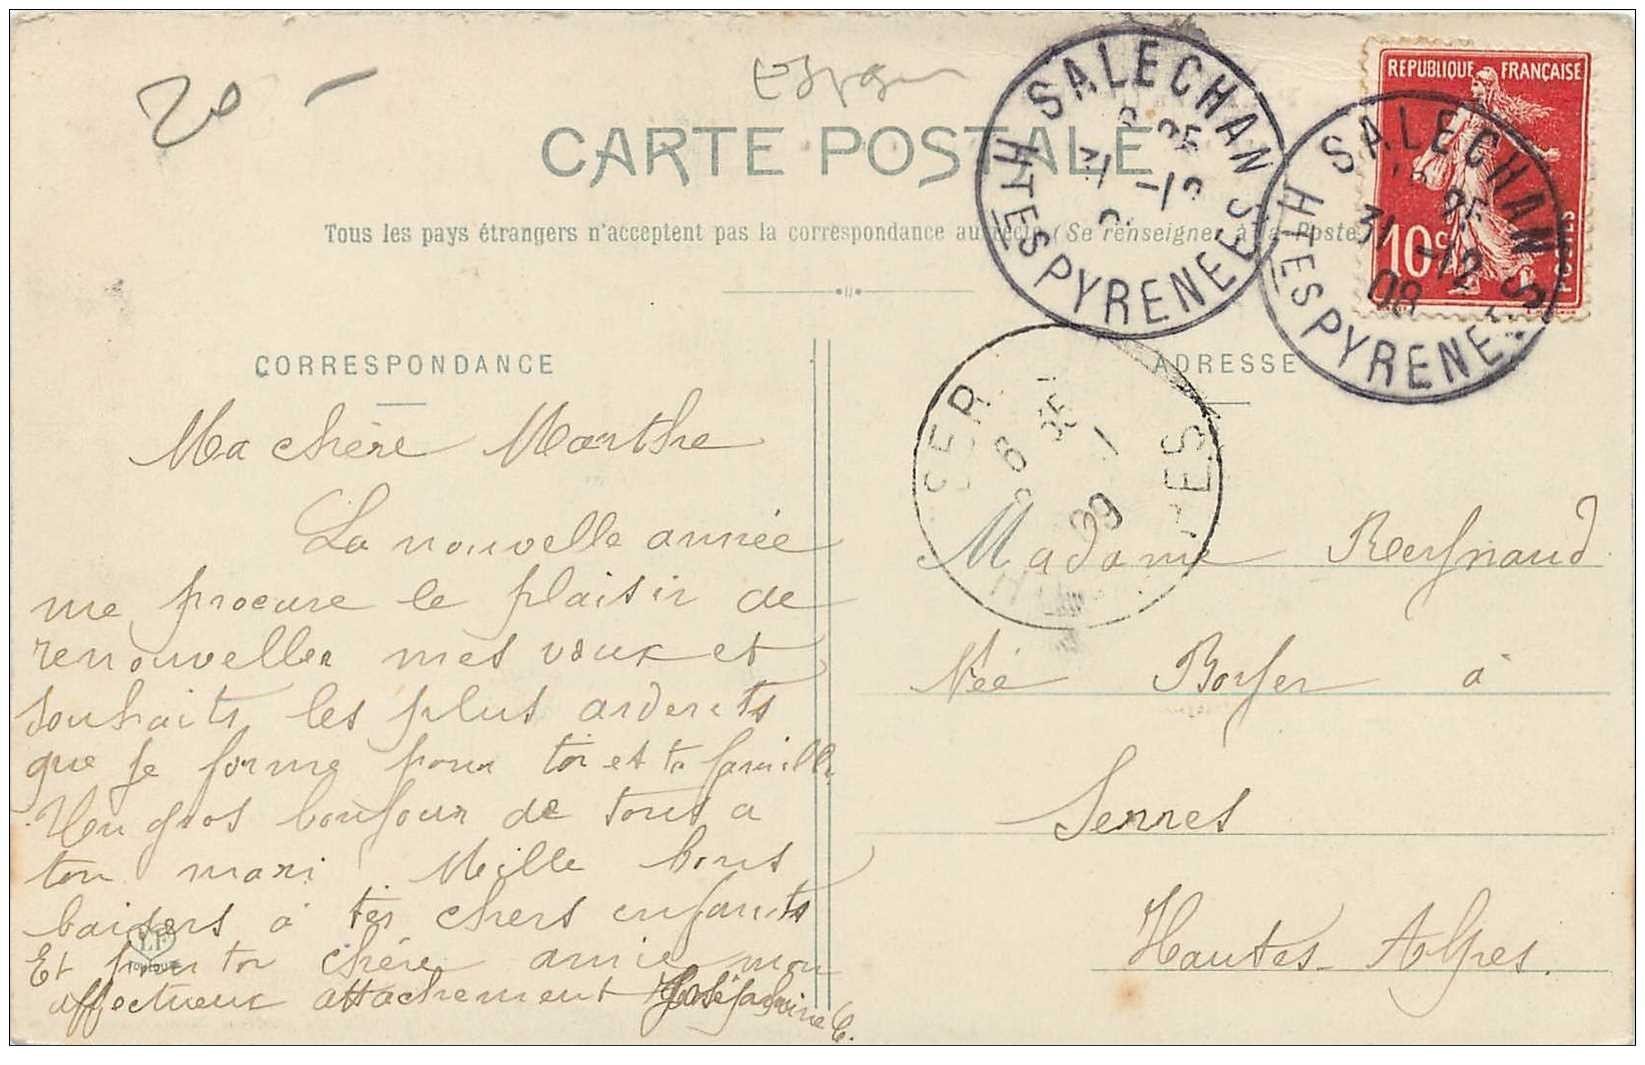 20 -
CARTE POSTALE
Tous les pays étrangers n'acceptent pas la correspondance au recto (Se renseigner à la Poste)
SALECHAN
HTES PYRENEES
REPUBLIQUE FRANÇAISE
10c
POSTES
SALECHAN
31 -12
08
HTES PYRENEES
CORRESPONDANCE
ADRESSE
SER
6 35
1
09
Ma chère Marthe
La nouvelle année
me procure le plaisir de
renouveller mes vœux et
souhaits les plus ardents
que je forme pour toi et ta famille
Un gros bonjour de tous a
ton mari Mille bons
baisers à tes chers enfants
Et pour toi chère amie mon
affectueux attachement Joséphine C.
LF
TOULOUSE
Madame Reynaud
Née Boyer à
Serres
Hautes-Alpes.